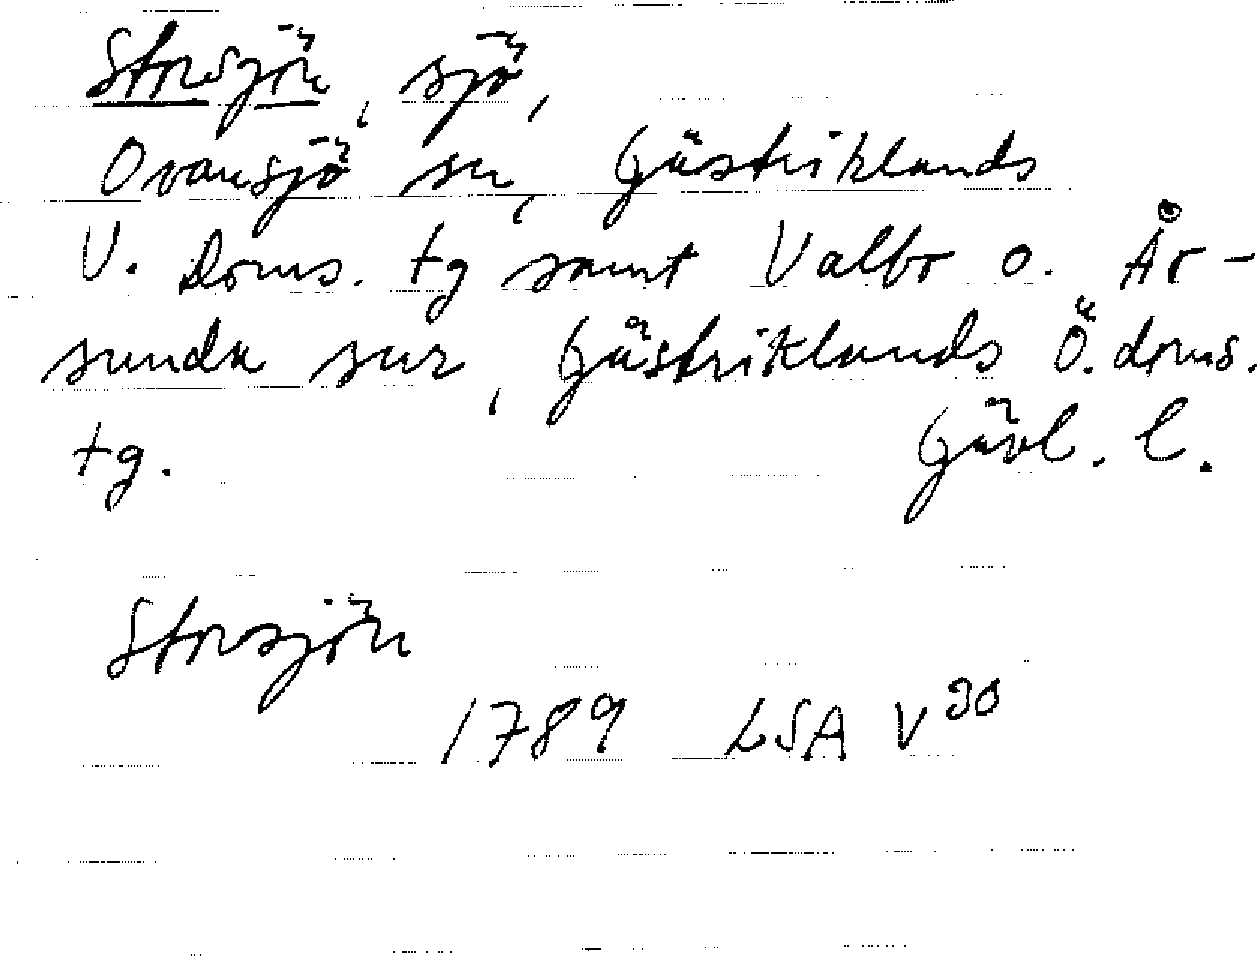 Storsjön, sjö,
Ovansjö sn, Gästriklands
V. Doms. tg samt Valbo o. År-
sunda snr, Gästriklands Ö. doms.
tg. Gävl. l.
Storsjön
1789 LSA V30